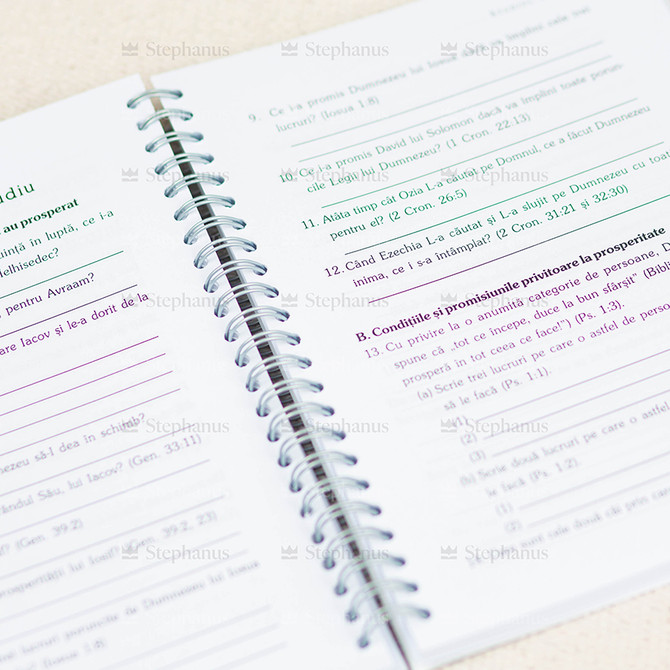 diu
au prosperat
uință în luptă, ce i-a
elhisedec?
pentru Avraam?
are Iacov și le-a dorit de la
nezeu să-l dea în schimb?
rândul Său, lui Iacov? (Gen. 33:11)
(Gen. 39:2)
prosperității lui Iosif? (Gen. 39:2, 23)
trei lucruri poruncite de Dumnezeu lui Iosua
(Iosua 1:8)
9. Ce i-a promis Dumnezeu lui Iosua dacă va împlini cele trei
lucruri? (Iosua 1:8)
10. Ce i-a promis David lui Solomon dacă va împlini toate porun-
cile Legii lui Dumnezeu? (1 Cron. 22:13)
11. Atâta timp cât Ozia L-a căutat pe Domnul, ce a făcut Dumnezeu
pentru el? (2 Cron. 26:5)
12. Când Ezechia L-a căutat și L-a slujit pe Dumnezeu cu toată
inima, ce i s-a întâmplat? (2 Cron. 31:21 și 32:30)
B. Condițiile și promisiunile privitoare la prosperitate
13. Cu privire la o anumită categorie de persoane, D
spune că „tot ce începe, duce la bun sfârșit” (Bibli
prosperă în tot ceea ce face!”) (Ps. 1:3).
(a) Scrie trei lucruri pe care o astfel de perso
să le facă (Ps. 1:1).
(1)
(2)
(3)
(b) Scrie două lucruri pe care o astfel
le facă (Ps. 1:2)
(1)
(2)
sunt cele două căi prin care
Stephanus Stephanus Stephanus
Stephanus Stephanus Stephanus
Stephanus Stephanus Stephanus
Stephanus Stephanus Stephanus
Stephanus Stephanus Stephanus